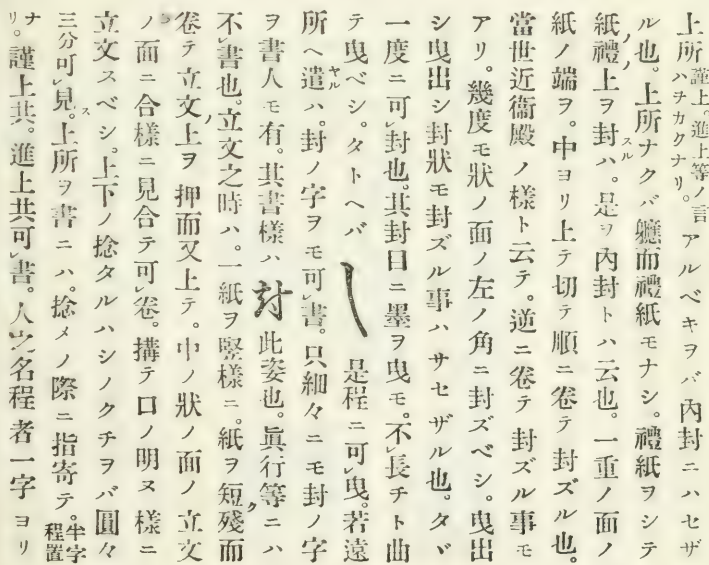 上所謹上。進上等ノ言ハチカクナリ。アルベキヲバ內封ニハセザ
ル也。上所ナクバ軈而禮紙モナシ。禮紙ヲシテ
紙禮上ヲ封スルハ。是ヲ內封トハ云也。一重ノ面ノ
紙ノ端ヲ。中ヨリ上テ切テ順ニ卷テ封ズル也。
當世近衞殿ノ樣ト云テ。逆ニ卷テ封ズル事モ
アリ。幾度モ狀ノ面ノ左ノ角ニ封ズベシ。曳出
シ曳出シ封狀モ封ズル事ハサセザル也。タヾ
一度ニ可封也。其封目ニ墨ヲ曳モ。不長チト曲
テ曳ベシ。タトヘバ 是程ニ可曳。若遠
所ヘ遣ヤルハ。封ノ字ヲモ可書。只細々ニモ封ノ字
ヲ書人モ有。其書樣ハ封此姿也。眞行等ニハ
不書也。立文之時ハ。一紙ヲ竪樣ニ。紙ヲ短殘而
卷テ立文上ヲ押而又上テ。中ノ狀ノ面ノ立文
ノ面ニ合樣ニ見合テ可卷。搆テ口ノ明ヌ樣ニ
立文スベシ。上下ノ捻タルハシノクチヲバ圓々
三分可見。上所ヲ書ニハ。捻メノ際ニ指寄テ。半字程置
ナリ。謹上共。進上共可書。人之名程者一字ヨリ